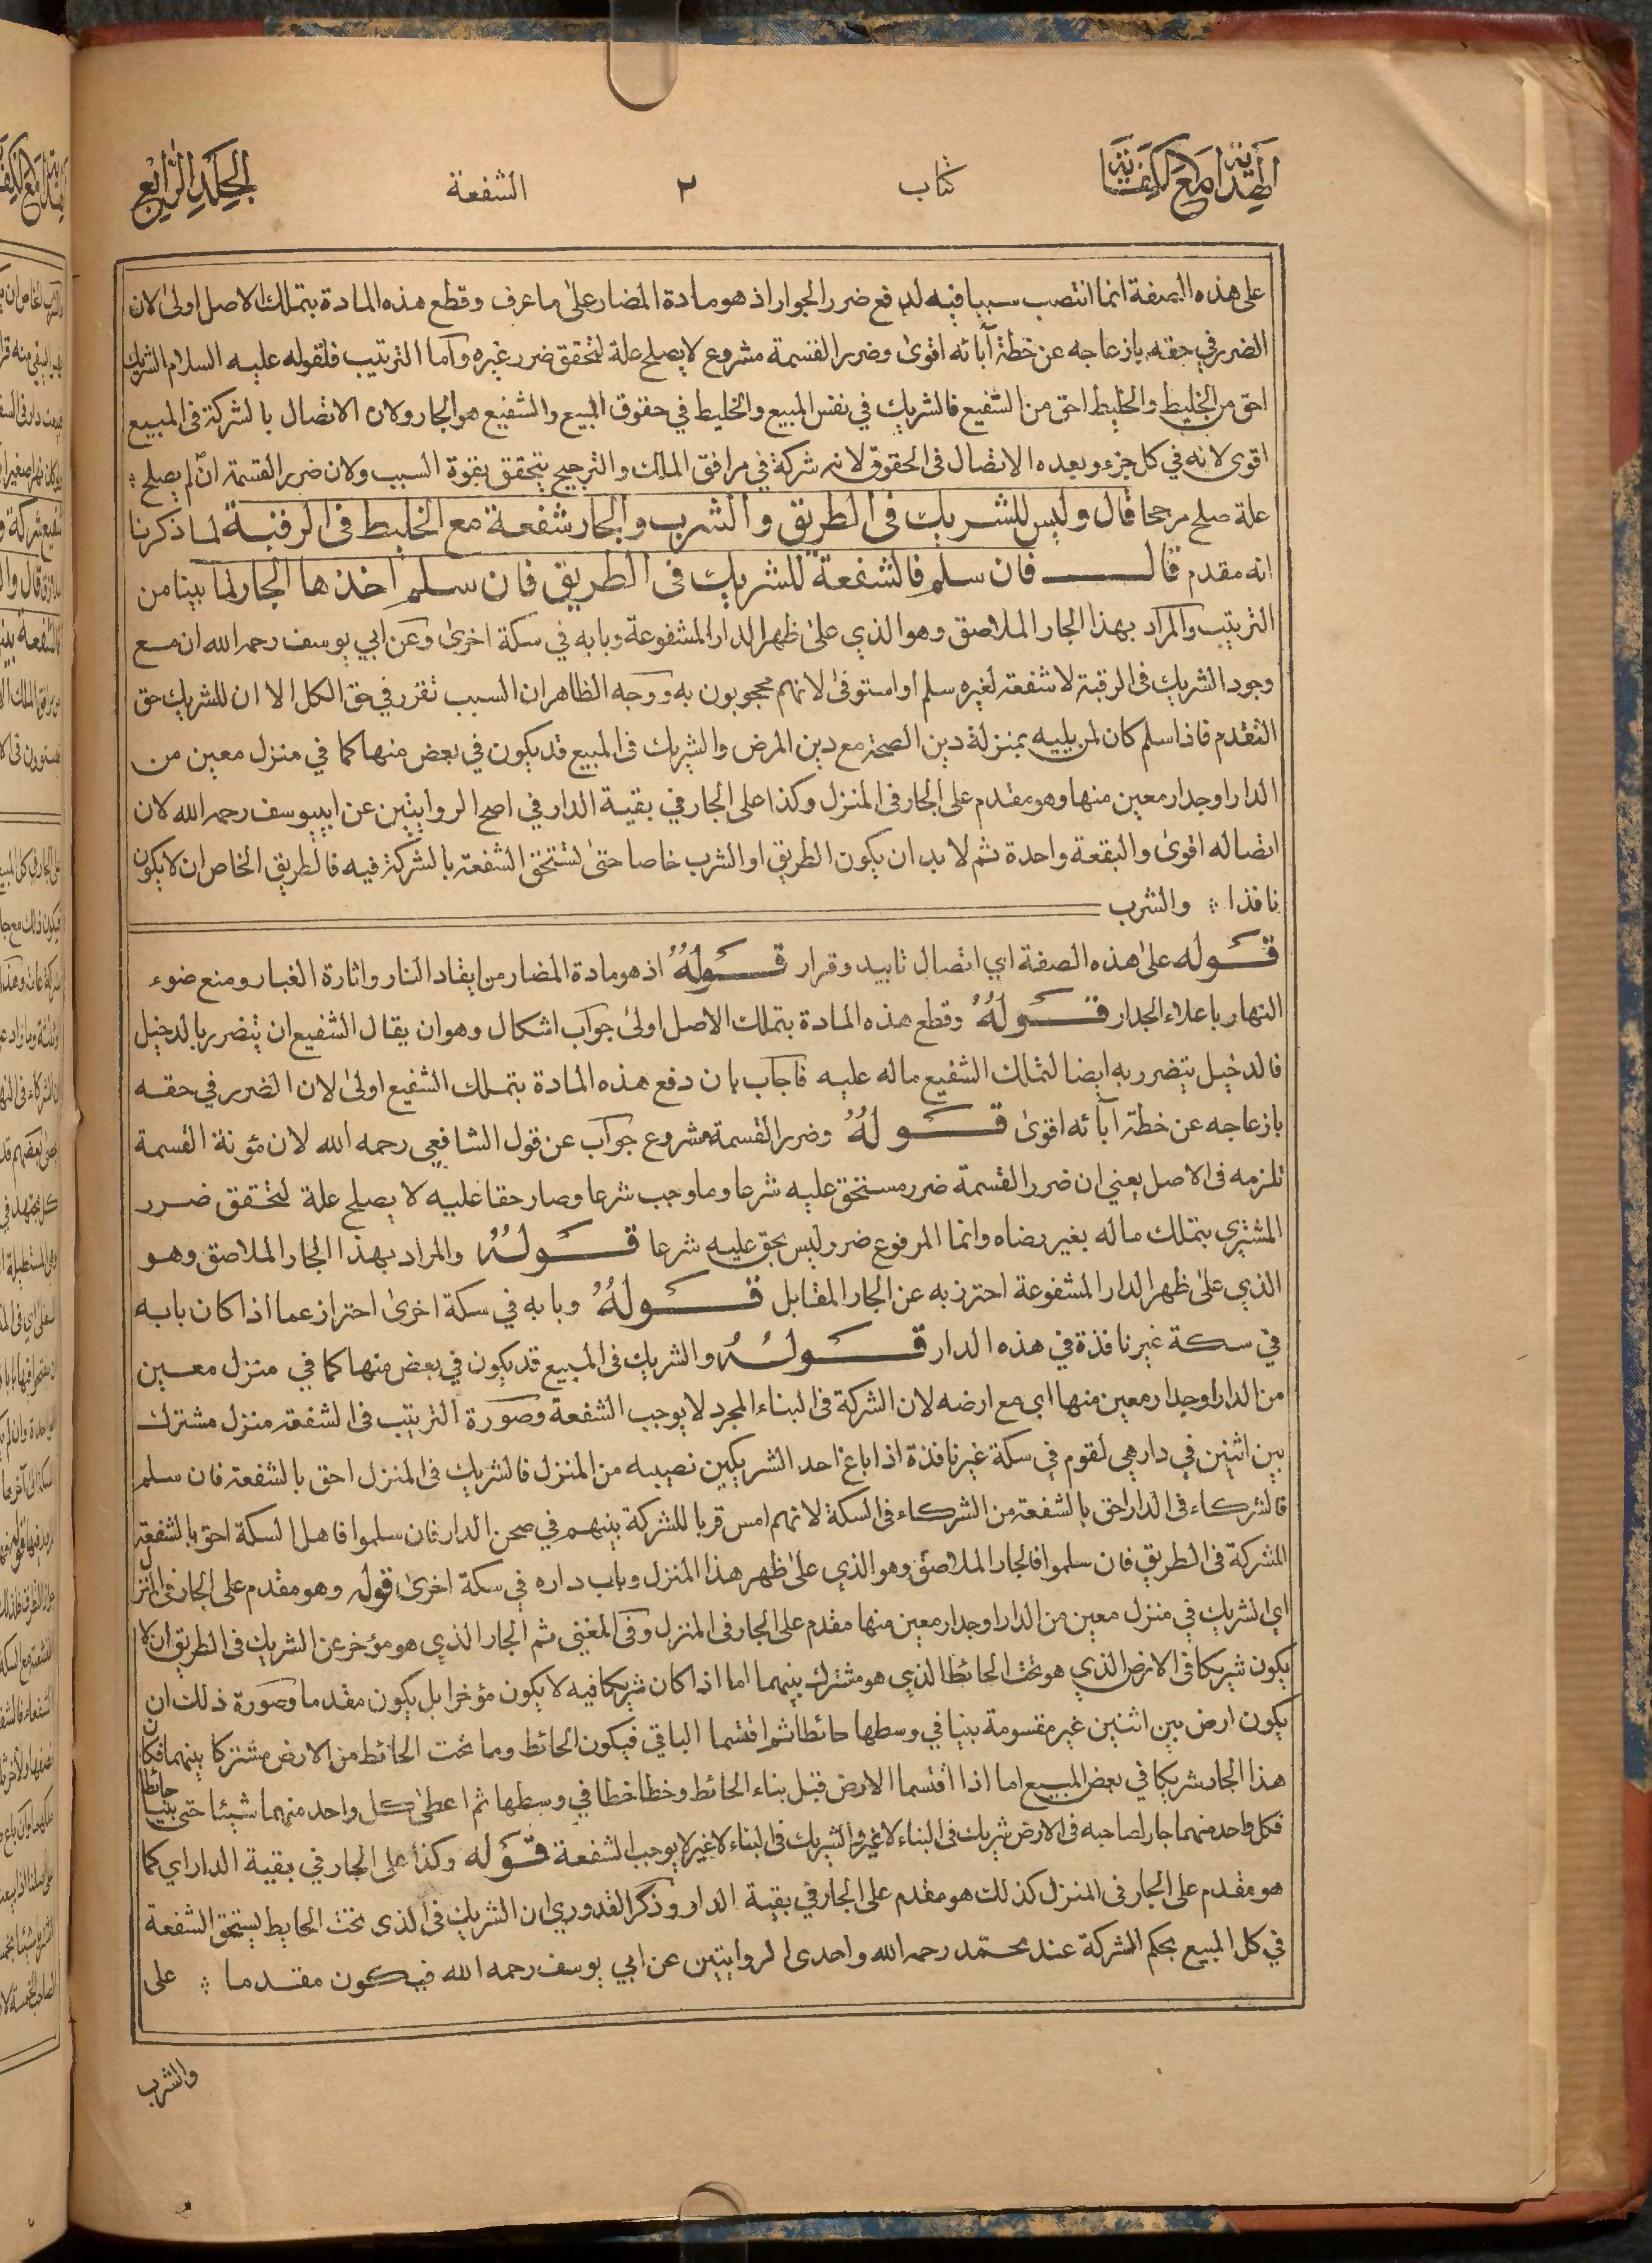 الهداية مع الكفاية
كتاب
٢
الشفعة
الجلد الرابع
على هذه الصفة انما انتصب سببا فيه لدفع ضرر الجوار اذ هو مادة المضار على ما عرف وقطع هذه المادة بتملك الاصل اولى لان
الضرر في حقه بازعاجه عن خطة آبائه اقوى وضرر القسمة مشروع لا يصلح علة لتحقق ضرر غيره وآما الترتيب فلقوله عليه السلام الشريك
احق من الخليط والخليط احق من الشفيع فالشريك في نفس المبيع والخليط في حقوق المبيع والشفيع هو الجار ولان الاتصال بالشركة في المبيع
اقوى لانه في كل جزء وبعده الاتصال في الحقوق لانه شركة في مرافق الملك والترجيح يتحقق بقوة السبب ولان ضرر القسمة ان لم يصلح ؞
علة صلح مرجحا قال وليس للشريك في الطريق والشرب والجار شفعة مع الخليط في الرقبة لما ذكرنا
انه مقدم قال فان سلم فالشفعة للشريك في الطريق فان سلم اخذها الجار لما بينا من
الترتيب والمراد بهذا الجار الملاصق وهو الذي على ظهر الدار المشفوعة وبابه في سكة اخرى وعن ابي يوسف رحمه الله ان مع
وجود الشريك في الرقبة لا شفعة لغيره سلم او استوفى لانهم محجوبون به ووجه الظاهر ان السبب تقرر في حق الكل الا ان للشريك حق
التقدم فاذا سلم كان لمن يليه بمنزلة دين الصحة مع دين المرض والشريك في المبيع قد يكون في بعض منها كما في منزل معين من
الدار او جدار معين منها وهو مقدم على الجار في المنزل وكذا على الجار في بقية الدار في اصح الروايتين عن ابييوسف رحمه الله لان
اتصاله اقوى والبقعة واحدة ثم لا بد ان يكون الطريق او الشرب خاصا حتى تستحق الشفعة بالشركة فيه فالطريق الخاص ان لا يكون
نافذا ؞ والشرب
قوله على هذه الصفة اي اتصال تابيد وقرار قوله اذ هو مادة المضار من ايقاد النار واثارة الغبار ومنع ضوء
النهار باعلاء الجدار قوله وقطع هذه المادة بتملك الاصل اولى جواب اشكال وهو ان يقال الشفيع ان يتضرر بالدخيل
فالدخيل يتضرر به ايضا لتملك الشفيع ماله عليه فاجاب بان دفع هذه المادة بتملك الشفيع اولى لان الضرر في حقه
بازعاجه عن خطة آبائه اقوى قوله وضرر القسمة مشروع جواب عن قول الشافعي رحمه الله لان مؤنة القسمة
تلزمه في الاصل يعني ان ضرر القسمة ضرر مستحق عليه شرعا وما وجب شرعا وصار حقا عليه لا يصلح علة لتحقق ضرر
المشتري بتملك ماله بغير رضاه وانما المرفوع ضرر ليس بحق عليه شرعا قوله والمراد بهذا الجار الملاصق وهو
الذي على ظهر الدار المشفوعة احترز به عن الجار المقابل قوله وبابه في سكة اخرى احتراز عما اذا كان بابه
في سكة غير نافذة في هذه الدار قوله والشريك في المبيع قد يكون في بعض منها كما في منزل معين
من الدار او جدار معين منها اي مع ارضه لان الشركة في البناء المجرد لا يوجب الشفعة وصورة الترتيب في الشفعة منزل مشترك
بين اثنين في دار هي لقوم في سكة غير نافذة اذا باع احد الشريكين نصيبه من المنزل فالشريك في المنزل احق بالشفعة فان سلم
فالشركاء في الدار احق بالشفعة من الشركاء في السكة لانهم امس قربا للشركة بينهم في صحن الدار فان سلموا فاهل السكة احق بالشفعة
للشركة في الطريق فان سلموا فالجار الملاصق وهو الذي على ظهر هذا المنزل وباب داره في سكة اخرى قوله وهو مقدم على الجار في المنزل
اي الشريك في منزل معين من الدار او جدار معين منها مقدم على الجار في المنزل وفي المغني ثم الجار الذي هو مؤخر عن الشريك في الطريق ان لا
يكون شريكا في الارض الذي هو تحت الحائط الذي هو مشترك بينهما اما اذا كان شريكا فيه لا يكون مؤخرا بل يكون مقدما وصورة ذلك ان
يكون ارض بين اثنين غير مقسومة بنيا في وسطها حائطا ثم اقتسما الباقي فيكون الحائط وما تحت الحائط من الارض مشتركا بينهما فكان
هذا الجار شريكا في بعض المبيع اما اذا اقتسما الارض قبل بناء الحائط وخطا خطا في وسطها ثم اعطى كل واحد منهما شيئا حتى بنيا حائطا
فكل واحد منهما جار لصاحبه في الارض شريك في البناء لا غير والشريك في البناء لا غير لا يوجب الشفعة قوله وكذا على الجار في بقية الدار اي كما
هو مقدم على الجار في المنزل كذلك هو مقدم على الجار في بقية الدار وذكر القدوري ان الشريك في الذي تحت الحايط يستحق الشفعة
في كل المبيع بحكم الشركة عند محمد رحمه الله واحدى الروايتين عن ابي يوسف رحمه الله فيكون مقدما ؞ على
والشرب